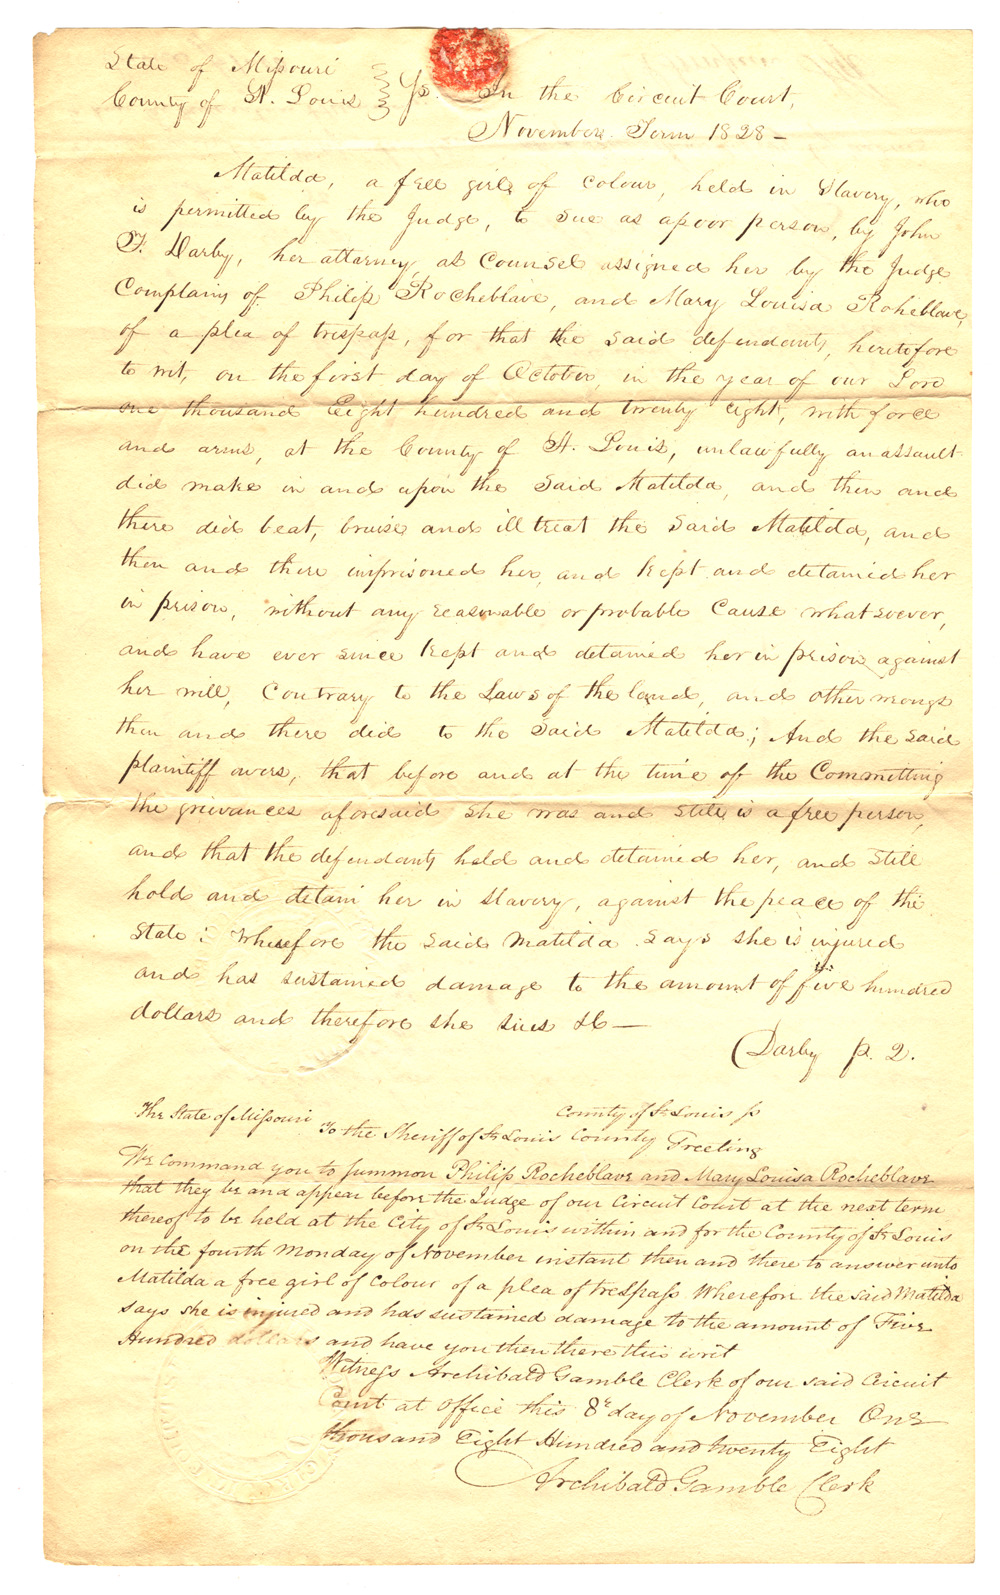 State of Missouri
County of St. Louis } Ss. In the Circuit Court,
November Term 1828 –
Matilda, a free girl of colour, held in Slavery, who
is permitted by the Judge, to sue as a poor person, by John
F. Darby, her attorney, as Counsel assigned her by the Judge
Complains of Philip Rocheblave, and Mary Louisa Rocheblave,
of a plea of trespass, for that the said defendants, heretofore
to wit, on the first day of October, in the year of our Lord
one thousand Eight hundred and twenty eight, with force
and arms, at the County of St. Louis, unlawfully an assault
did make in and upon the said Matilda, and then and
there did beat, bruise and ill treat the said Matilda, and
then and there imprisoned her, and kept and detained her
in prison, without any reasonable or probable Cause whatsoever,
and have ever since kept and detained her in prison against
her will, Contrary to the Laws of the land, and other wrongs
then and there did to the said Matilda; And the said
plaintiff avers, that before and at the time of the Committing
the grievances aforesaid she was and still is a free person,
and that the defendants held and detained her, and still
hold and detain her in Slavery, against the peace of the
State: Wherefore the said Matilda says she is injured
and has sustained damage to the amount of five hundred
dollars and therefore she sues &c —
Darby p. q.
The State of Missouri County of St Louis ss
To the Sheriff of St Louis County Greeting
We command you to summon Philip Rocheblave and Mary Louisa Rocheblave
that they be and appear before the Judge of our Circuit Court at the next term
thereof to be held at the City of St Louis within and for the County of St Louis
on the fourth Monday of November instant then and there to answer unto
Matilda a free girl of Colour of a plea of trespass Wherefore the said Matilda
says she is injured and has sustained damage to the amount of Five
Hundred dollars and have you then there this writ
Witness Archibald Gamble Clerk of our said Circuit
Court at office this 8th day of November One
thousand Eight Hundred and twenty Eight
Archibald Gamble Clerk